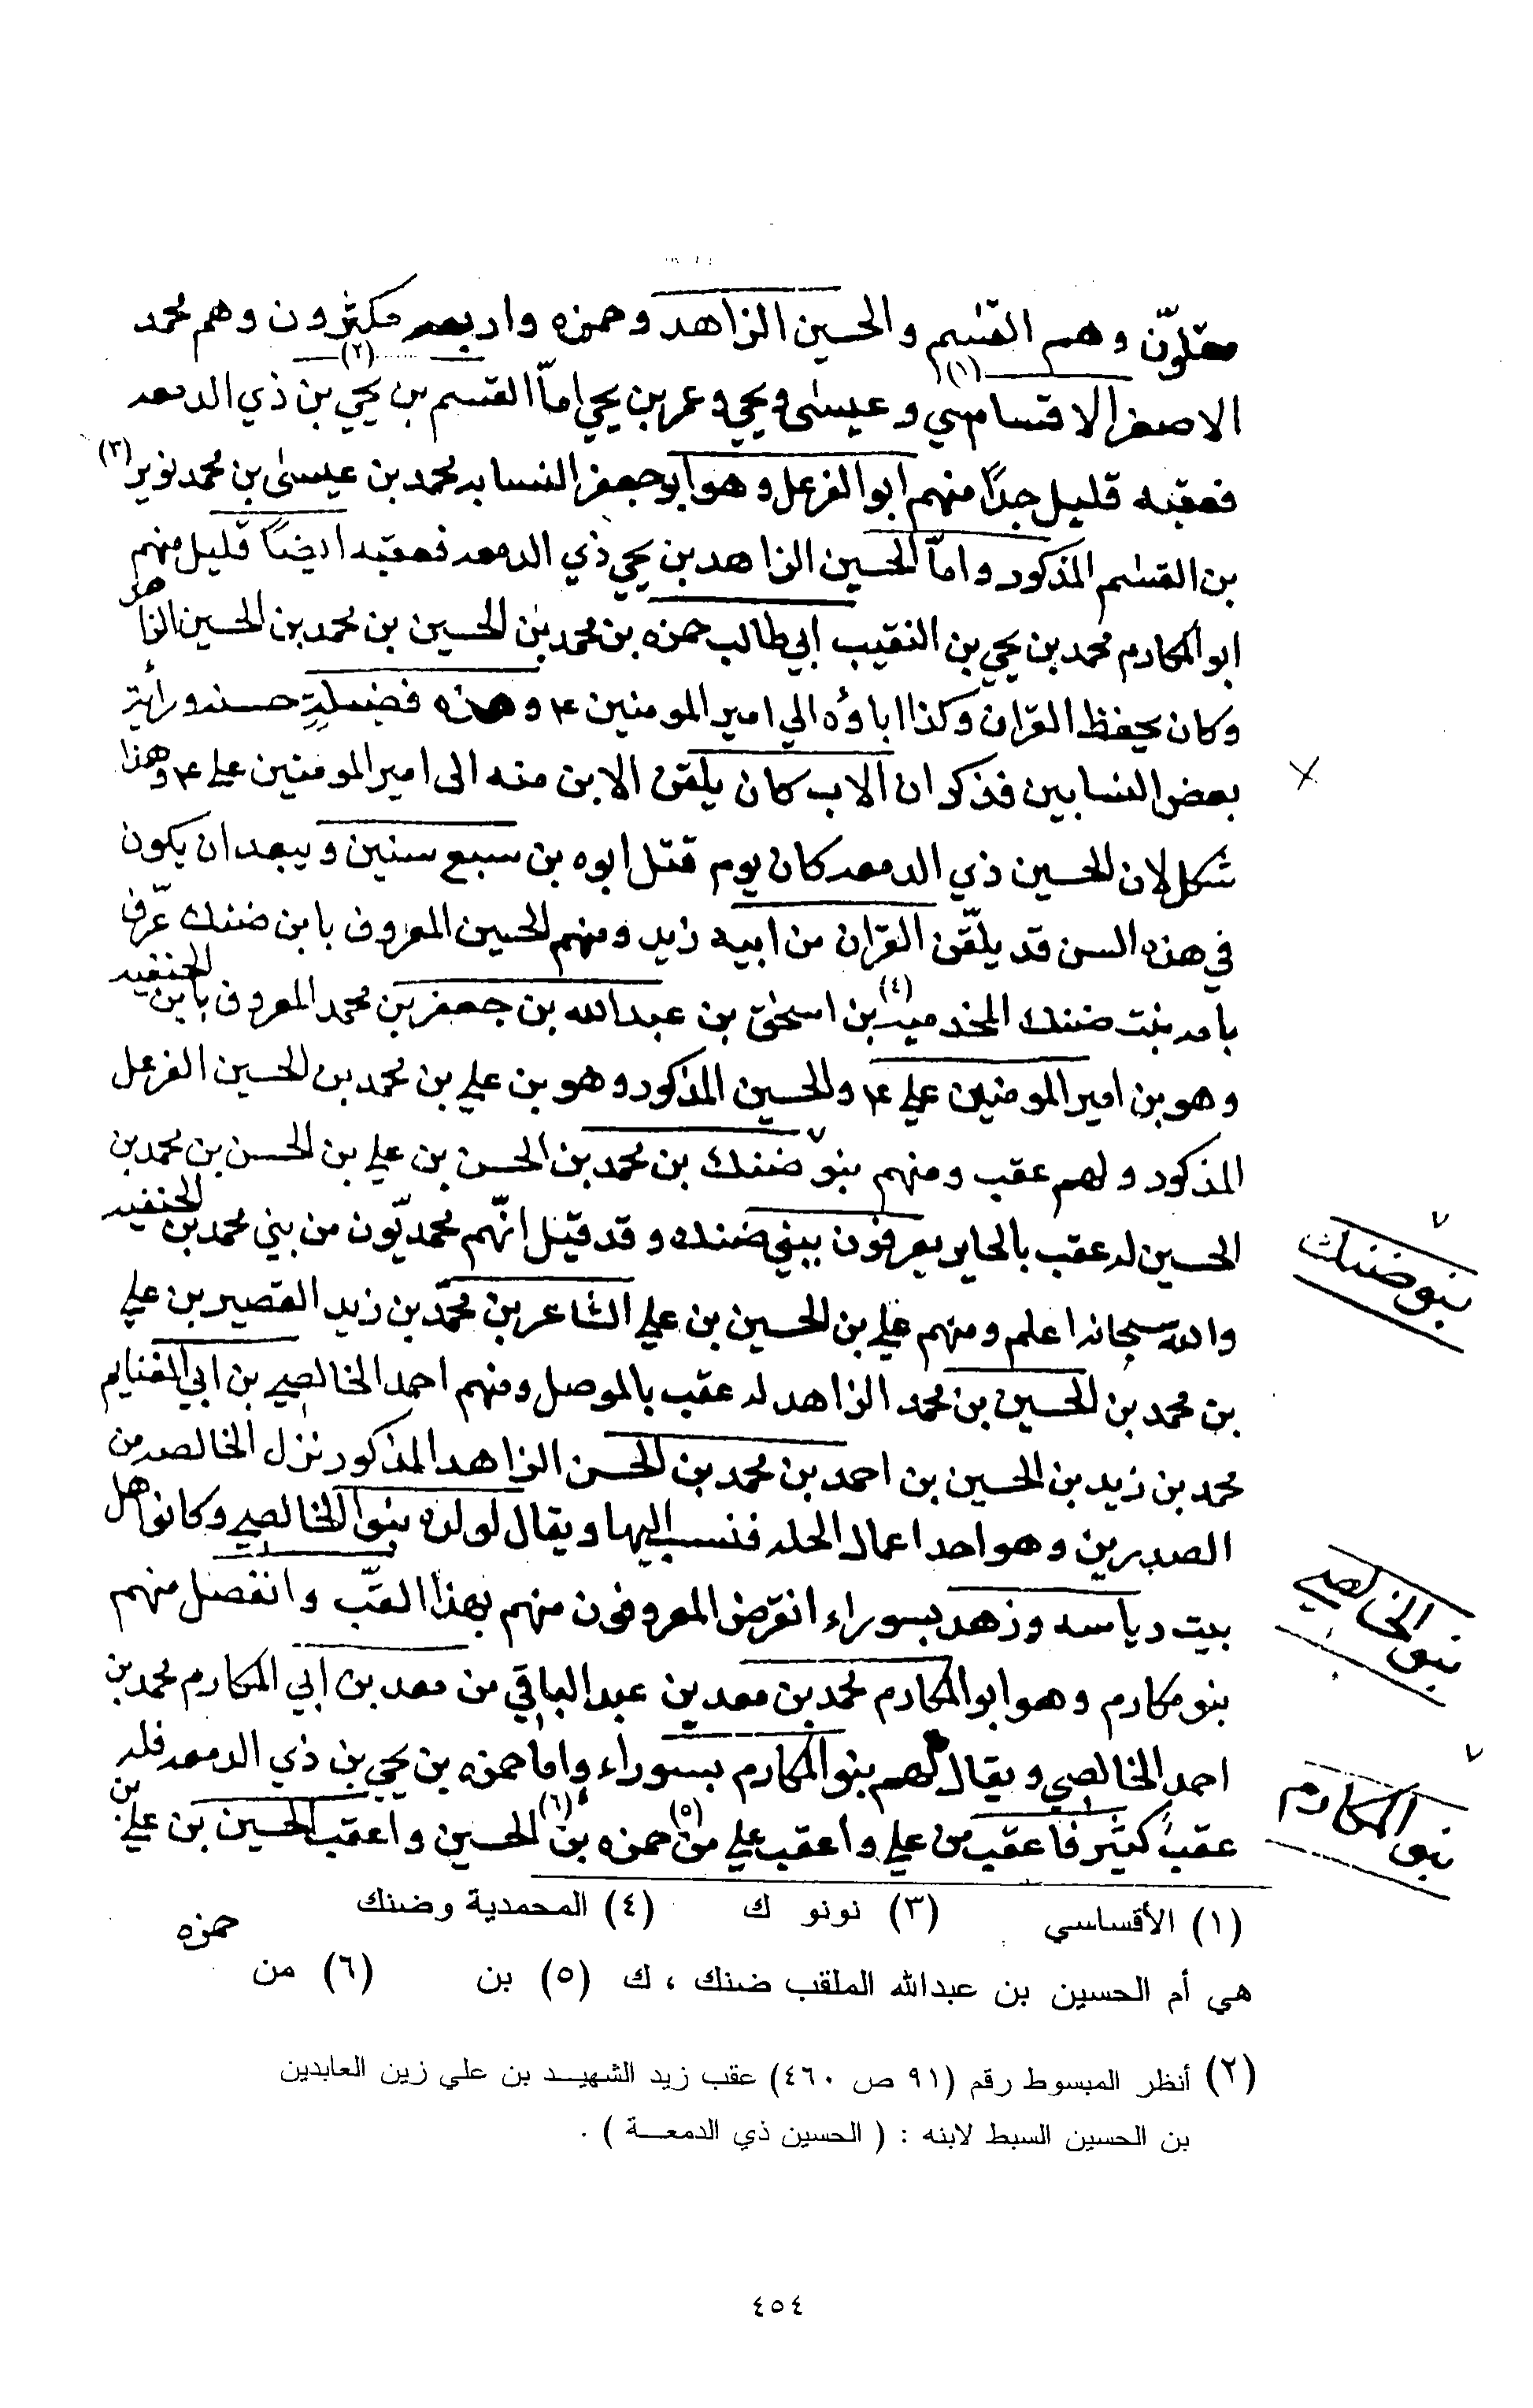 مقلوّن وهم القسٰم والحسين الزاهد وحمزه واربعه مكثرون وهم محمد
الاصغر الاقتسامي (١) وعيسٰى ويحيي وعمر بن يحيي (٢) امّا القسم بن يحيي بن ذي الدمعه
فعقبه قليل جداً منهم ابو الفرعل وهو ابو جعفر النسابه محمد بن عيسىٰ بن محمد نوير (٣)
بن القسٰم المذكور وامّا الحسين الزاهد بن يحيي ذي الدمعه فعقبه ايضاً قليل منهم
ابو المكارم محمد بن يحيي بن النقيب ابي طالب حمزه بن محمد بن الحسين بن محمد بن الحسين الزاهد
وكان يحفظ القرٰان وكذا اباؤه الي امير المومنين ع وهذه فضيلةٍ حسنه ورأيت
بعض النسابين فذكر ان الاب كان يلقن الابن منه الى امير المومنين علي ع وهذا
شكل لان الحسين ذي الدمعه كان يوم قتل ابوه بن سبع سنين ويبعد ان يكون
في هذه السن قد يلقّن القرٰان من ابيه زيد ومنهم الحسين المعروف بابن ضنك عرّف
بامه بنت ضنك المخدميه (٤) بن اسحٰق بن عبدالله بن جعفر بن محمد المعروف بابن الحنفيه
وهو بن امير المومنين علي ع والحسين المذكور وهو بن علي بن محمد بن الحسين الفرعل
المذكور ولهم عقب ومنهم بنو ضنك بن محمد بن الحسن بن علي بن الحسن بن محمد بن
الحسين له عقب بالحاير يعرفون ببني ضنك وقد قيل انّهم محمديّون من بني محمد بن الحنفيه
والله سبحانه اعلم ومنهم علي بن الحسين بن علي الشاعر بن محمّد بن زيد القصير بن علي
بن محمد بن الحسين بن محمد الزاهد له عقب بالموصل ومنهم احمد الخالصي بن ابي الغنايم
محمد بن زيد بن الحسين بن احمد بن محمد بن الحسن الزاهد المذكور نزل الخالصه من
الصدرين وهو احد اعمال الحله فنسب اليها ويقال لولده بنوا الخالصي وكانوا اهل
بيت رياسه وزهد بسوراء انقرض المعروفون منهم بهذا القّب وانفصل منهم
بنو مكارم وهو ابو المكارم محمد بن معد بن عبد الباقي من معد بن ابي المكارم محمد بن
احمد الخالصي ويقال لهم بنو المكارم بسوراء وامّا حمزه بن يحيي بن ذي الدمعه فله
عقبً كثير فاعقب من علي واعقب علي من (٥) حمزه بن (٦) الحسين واعقب الحسين بن علي بن
بنو ضنك
بنو الخالصي
بنو المكارم
(١) الأقساسي (٣) نونو ك (٤) المحمدية وضنك
هي أم الحسين بن عبدالله الملقب ضنك ، ك (٥) بن (٦) من حمزه
(٢) أنظر المبسوط رقم (٩١ ص ٤٦٠) عقب زيد الشهيد بن علي زين العابدين
بن الحسين السبط لابنه : ( الحسين ذي الدمعة ) .
٤٥٤